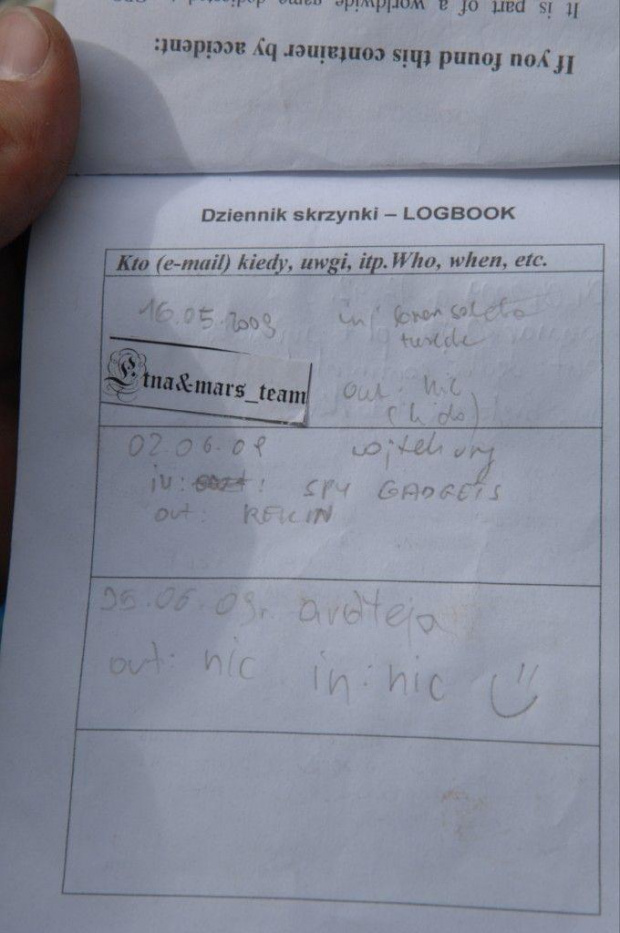 It is part of a worldwide game dedicated
If you found this container by accident:
Dziennik skrzynki – LOGBOOK
Kto (e-mail) kiedy, uwgi, itp. Who, when, etc.
16.05.2009 in:
tna&mars_team
out: nic
02.06.09
in: SPY GADGETS
out: REKIN
05.06.09r. avoteja
out: nic in: nic